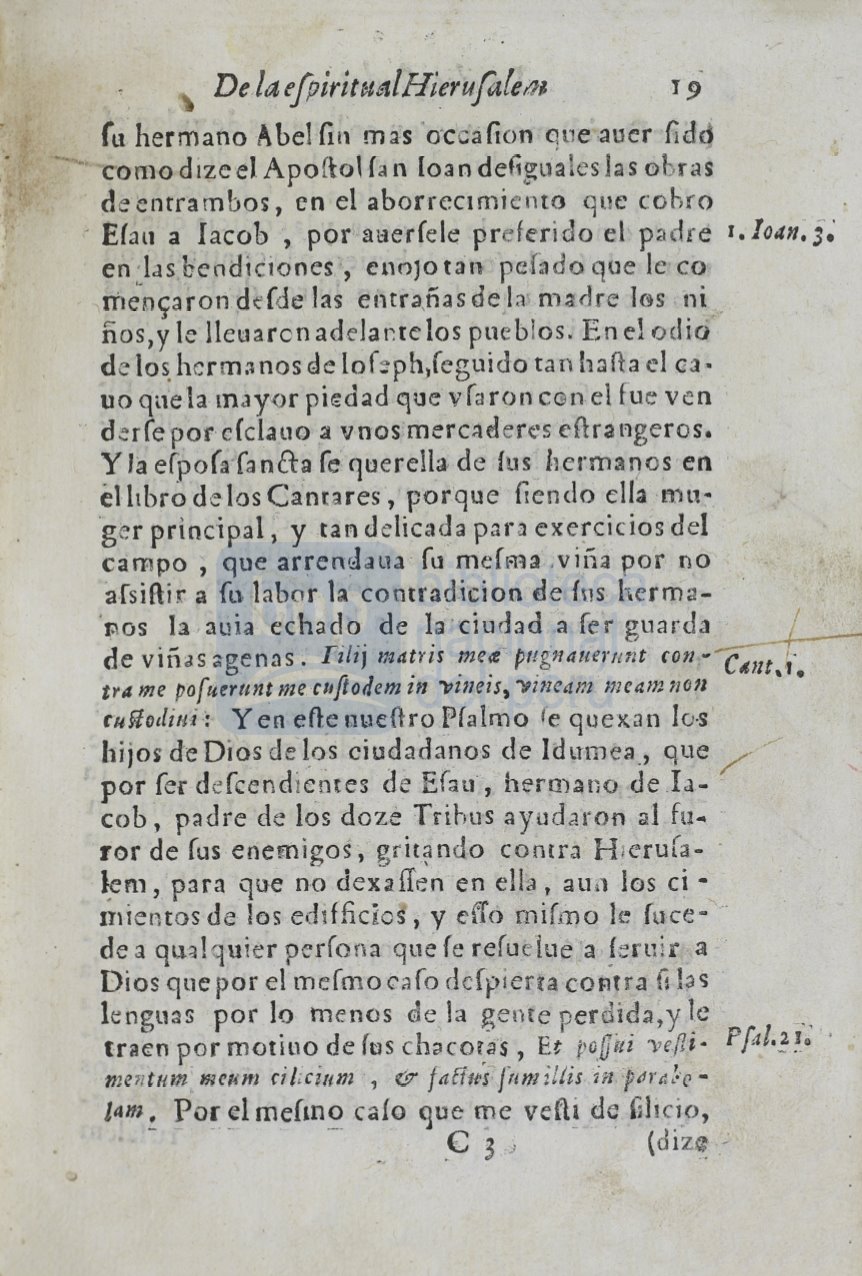 De la eſpiritual Hieruſalem 19
ſu hermano Abel ſin mas occaſion que auer ſido
como dize el Apoſtol ſan Ioan deſiguales las obras
de entrambos, en el aborrecimiento que cobro
Eſau a Iacob , por auerſele preferido el padre
1. Ioan. 3.
en las bendiciones , enojo tan peſado que le co
mençaron deſde las entrañas de la madre los ni
ños, y le lleuaron adelante los pueblos. En el odio
de los hermanos de Ioſeph, ſeguido tan haſta el ca-
uo que la mayor piedad que vſaron con el fue ven
derſe por eſclauo a vnos mercaderes eſtrangeros.
Y la eſpoſa ſancta ſe querella de ſus hermanos en
el libro de los Cantares, porque ſiendo ella mu-
ger principal, y tan delicada para exercicios del
campo , que arrendaua ſu meſma viña por no
aſsiſtir a ſu labor la contradicion de ſus herma-
nos la auia echado de la ciudad a ſer guarda
de viñas agenas. Filij matris meæ pugnauerunt con-
Cant. 1.
tra me poſuerunt me cuſtodem in vineis, vineam meam non
cuſtodiui : Y en eſte nueſtro Pſalmo ſe quexan los
hijos de Dios de los ciudadanos de Idumea, que
por ſer deſcendientes de Eſau , hermano de Ia-
cob, padre de los doze Tribus ayudaron al fu-
ror de ſus enemigos, gritando contra Hieruſa-
lem, para que no dexaſſen en ella, aun los ci -
mientos de los edifficios, y eſſo miſmo le ſuce-
de a qualquier perſona que ſe reſuelue a ſeruir a
Dios que por el meſmo caſo deſpierta contra ſi las
lenguas por lo menos de la gente perdida, y le
traen por motiuo de ſus chacotas, Et poſſui veſti-
Pſal. 21.
mentum meum cilicium , & factus ſum illis in parabo-
lam. Por el meſmo caſo que me veſti de ſilicio,
C 3
(dize